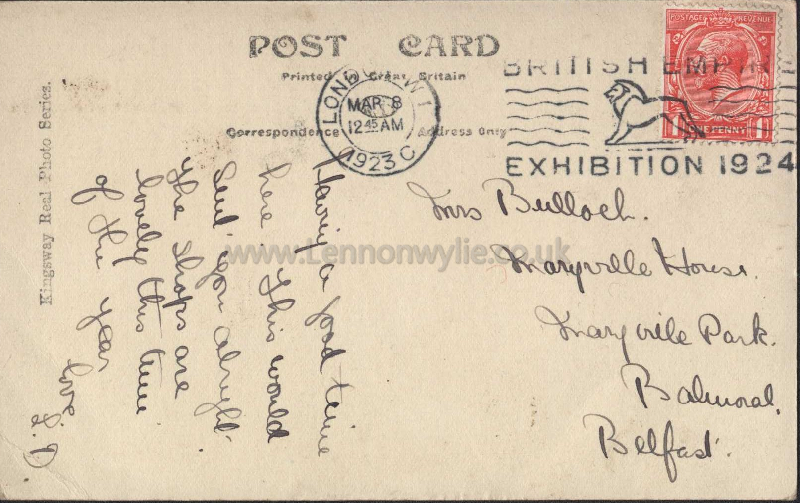 POST CARD
Printed in Great Britain
Correspondence Address Only
Kingsway Real Photo Series.
LONDON. W.1
MAR 8
12 45 AM
1923 C
BRITISH EMPIRE
EXHIBITION 1924
POSTAGE REVENUE
ONE PENNY
Having a good time
here. This would
suit you alright
the shops are
lovely this time
of the year
love.
Mrs Bulloch.
Maryville House.
Maryvile Park.
Balmoral.
Belfast.
www.Lennonwylie.co.uk